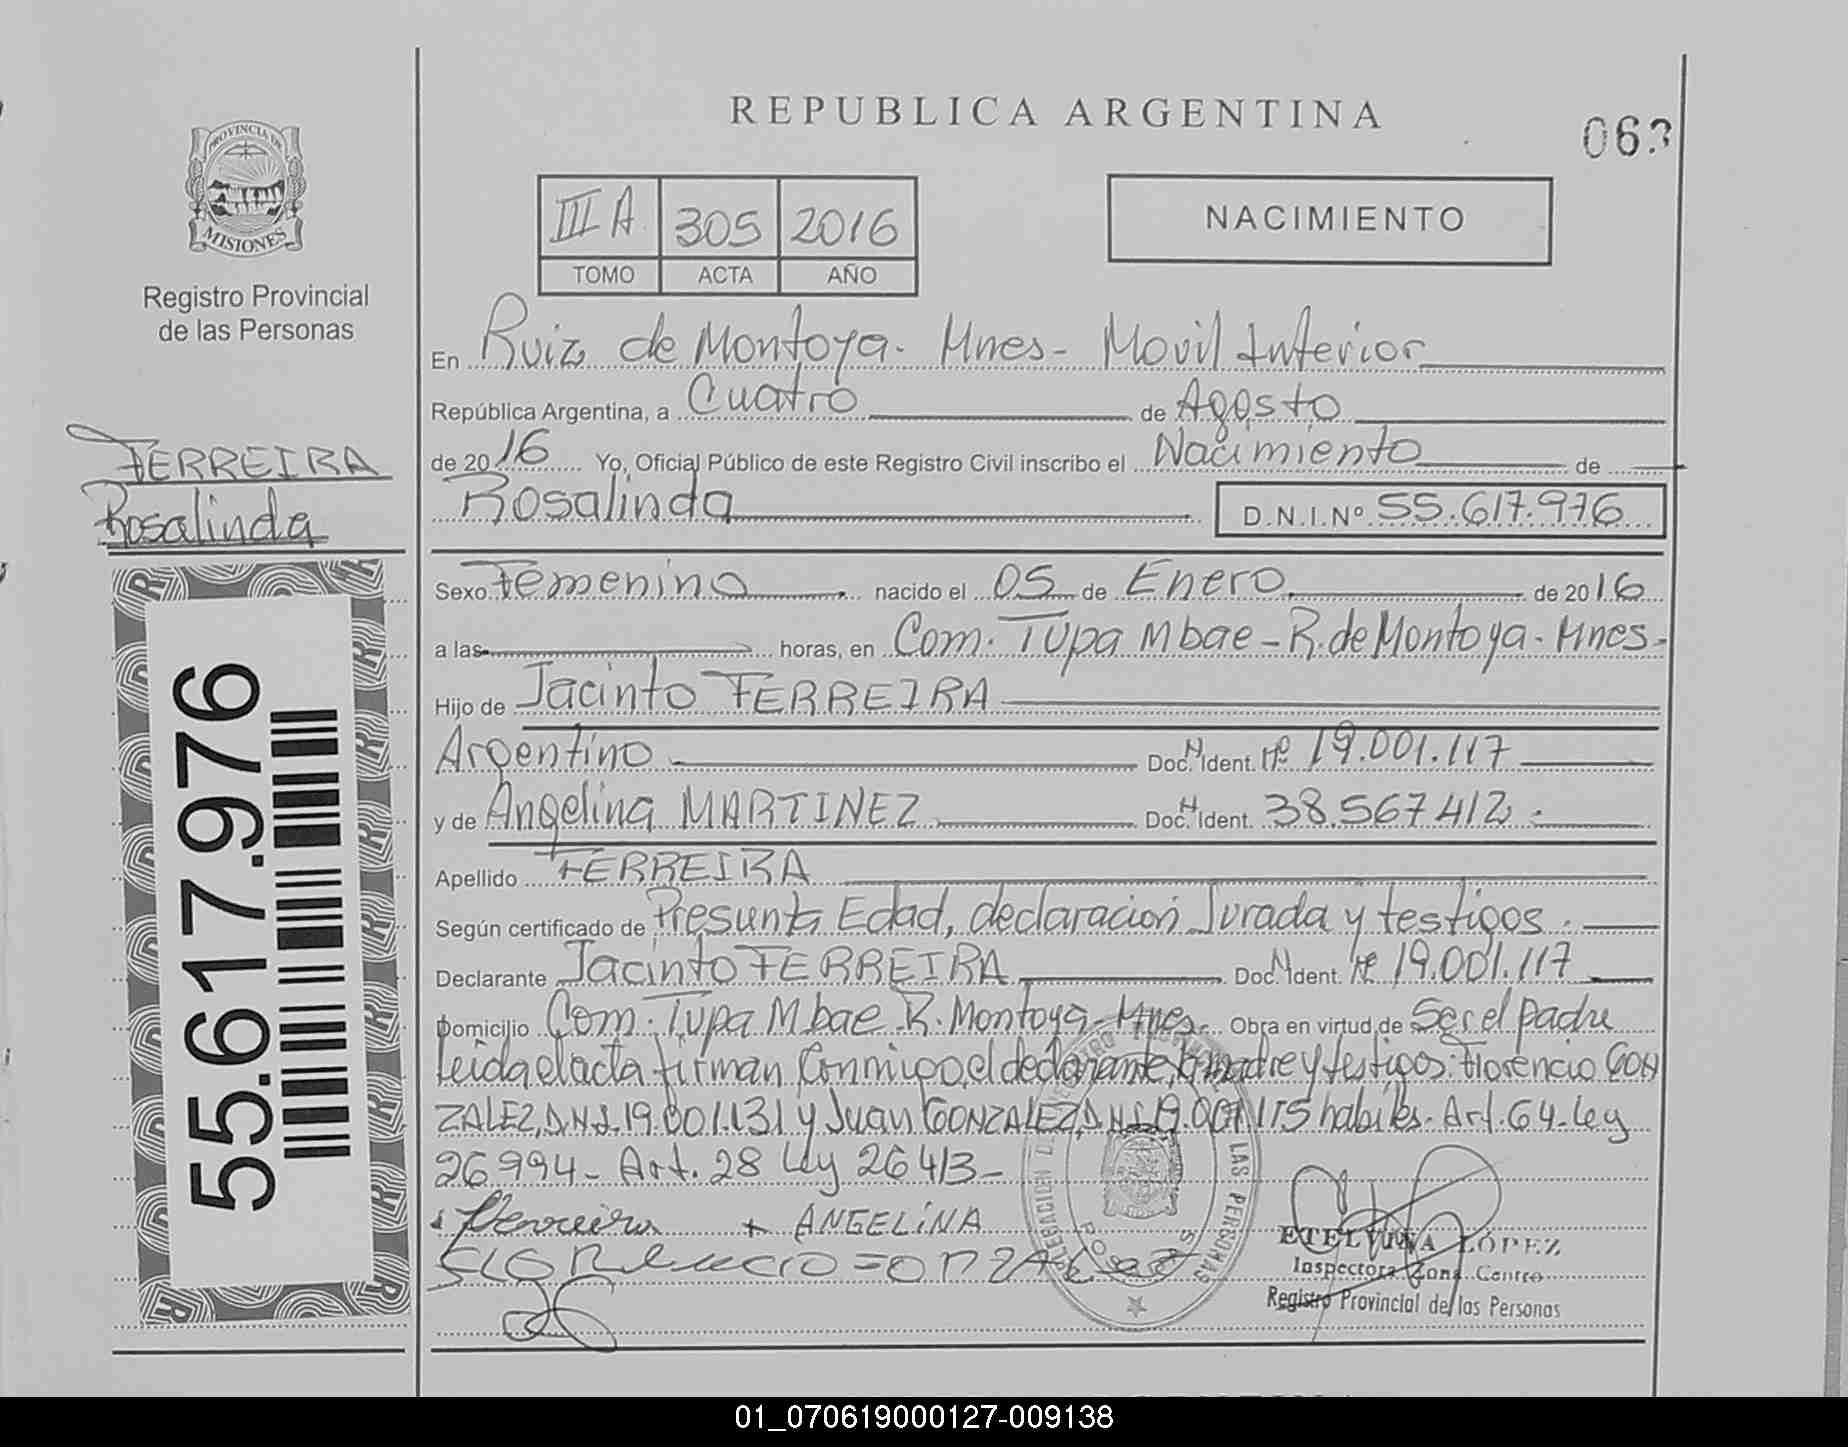 REPUBLICA ARGENTINA
063
PROVINCIA DE
MISIONES
Registro Provincial
de las Personas
III A 305 2016
TOMO ACTA AÑO
NACIMIENTO
En Ruiz de Montoya - Mnes - Movil Interior
República Argentina, a Cuatro de Agosto
de 2016 Yo, Oficial Público de este Registro Civil inscribo el Nacimiento de
Rosalinda D.N.I.Nº 55.617.976
FERREIRA
Rosalinda
55.617.976
Sexo Femenino nacido el 05 de Enero de 2016
a las horas, en Com. Tupa Mbae - R. de Montoya - Mnes -
Hijo de Jacinto FERREIRA
Argentino Doc. N. Ident. Nº 19.001.117
y de Angelina MARTINEZ Doc. N. Ident. 38.567412
Apellido FERREIRA
Según certificado de Presunta Edad, declaración Jurada y testigos.
Declarante Jacinto FERREIRA Doc. N. Ident. Nº 19.001.117
Domicilio Com. Tupa Mbae R. Montoya - Mnes. Obra en virtud de Ser el padre
Leida el acta firman Conmigo, el declarante, la madre y testigos: Florencio GON
ZALEZ, D.N.I. 19.001.131 y Juan GONZALEZ, D.N.I. 19.001.115 habiles. Art. 64 - Ley
26994 - Art. 28 Ley 26413 -
Ferreira + ANGELINA
DELEGACION LAS PERSONAS
POSADAS
ETELVINA LÓPEZ
Inspectora Zona Centro
Registro Provincial de las Personas
01_070619000127-009138